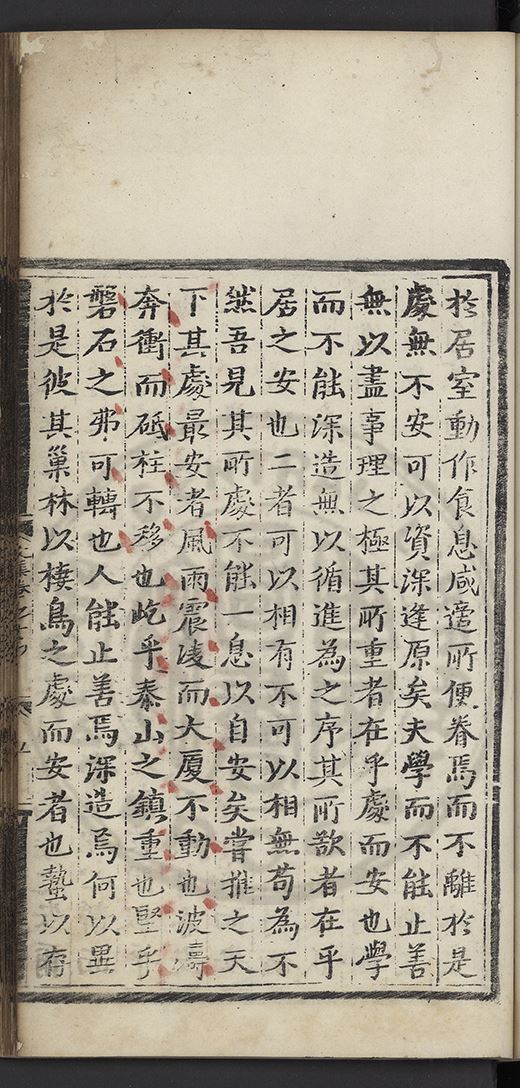 於居室動作食息咸適所便眷焉而不離於是
處無不安可以資深逢原矣夫學而不能止善
無以盡事理之極其所重者在乎處而安也學
而不能深造無以循進為之序其所歆者在乎
居之安也二者可以相有不可以相無苟為不
然吾見其所處不能一息以自安矣嘗推之天
下其處最安者風雨震凌而大厦不動也波濤
奔衝而砥柱不移也屹乎泰山之鎮重也堅乎
磐石之弗可轉也人能止善焉深造焉何以異
於是彼其巢林以棲鳥之處而安者也蟄以存